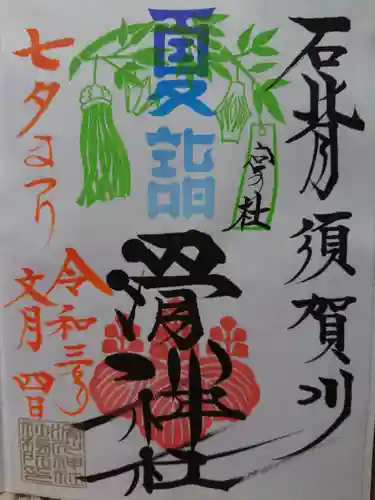 石背須賀川
夏詣
滑川神社
七夕まつり
令和三年
文月四日